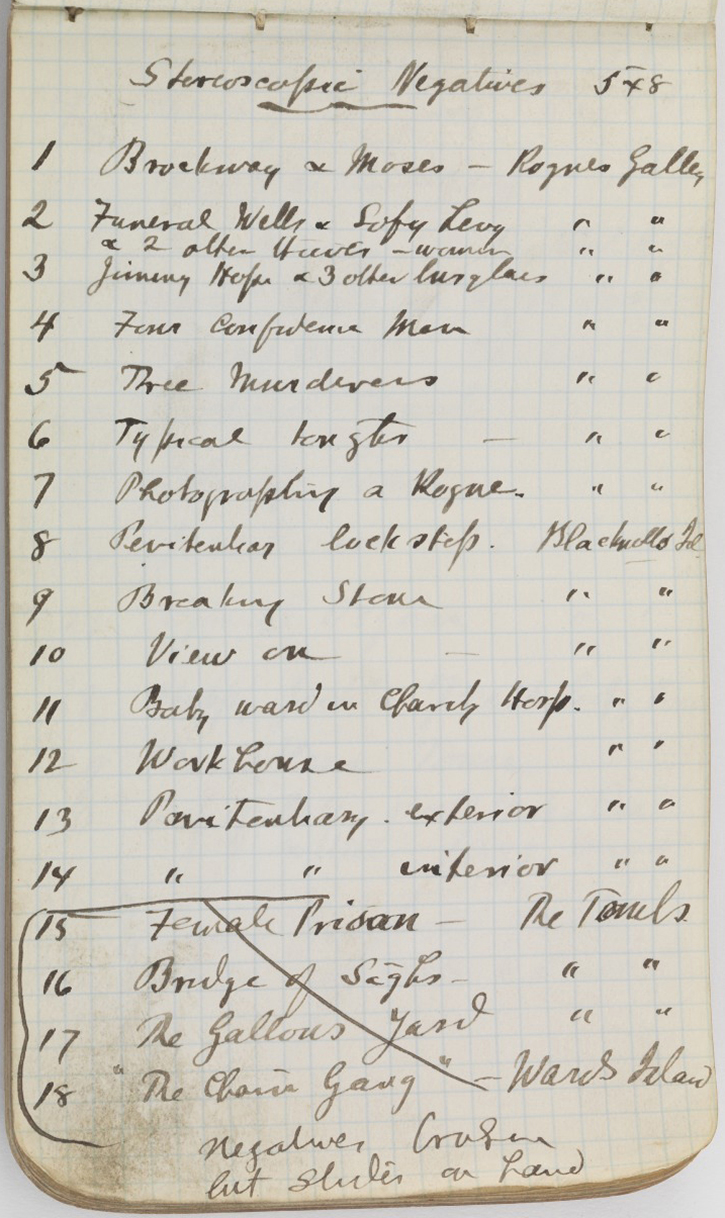 Stereoscopic Negatives 5x8
1 Brockway & Moses - Rogues Galley
2 Funeral Wells & Sofy Levy " "
& 2 other thieves - women " "
3 Jimmy Hope & 3 other burglars " "
4 Four Confidence Men " "
5 Three Murderers " "
6 Typical toughs - " "
7 Photographing a Rogue. " "
8 Penitentiary lockstep. Blackwells Isl
9 Breaking Stone " "
10 View on - " "
11 Baby ward in Charity Hosp. " "
12 Workhouse " "
13 Penitentiary. exterior " "
14 " " interior " "
15 Female Prison - The Tombs
16 Bridge of Sighs - " "
17 The Gallows Yard " "
18 "The Chain Gang" - Wards Island
Negatives broken
but slides on hand